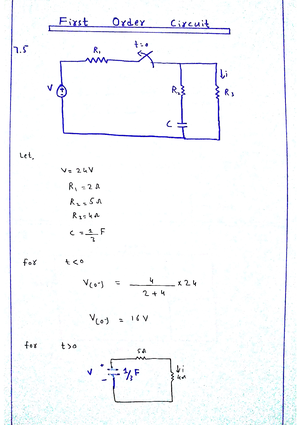 First Order Circuit
7.5
R₁
t=0
↓i
V
R₂
R₃
C
Let,
V= 24V
R₁ = 2Ω
R₂ = 5Ω
R₃ = 4Ω
C = 1/3 F
for t<0
V(0⁻) = 4/(2+4) × 24
V(0⁻) = 16 V
for t>0
5Ω
V + - 1/3 F
↓i
4Ω